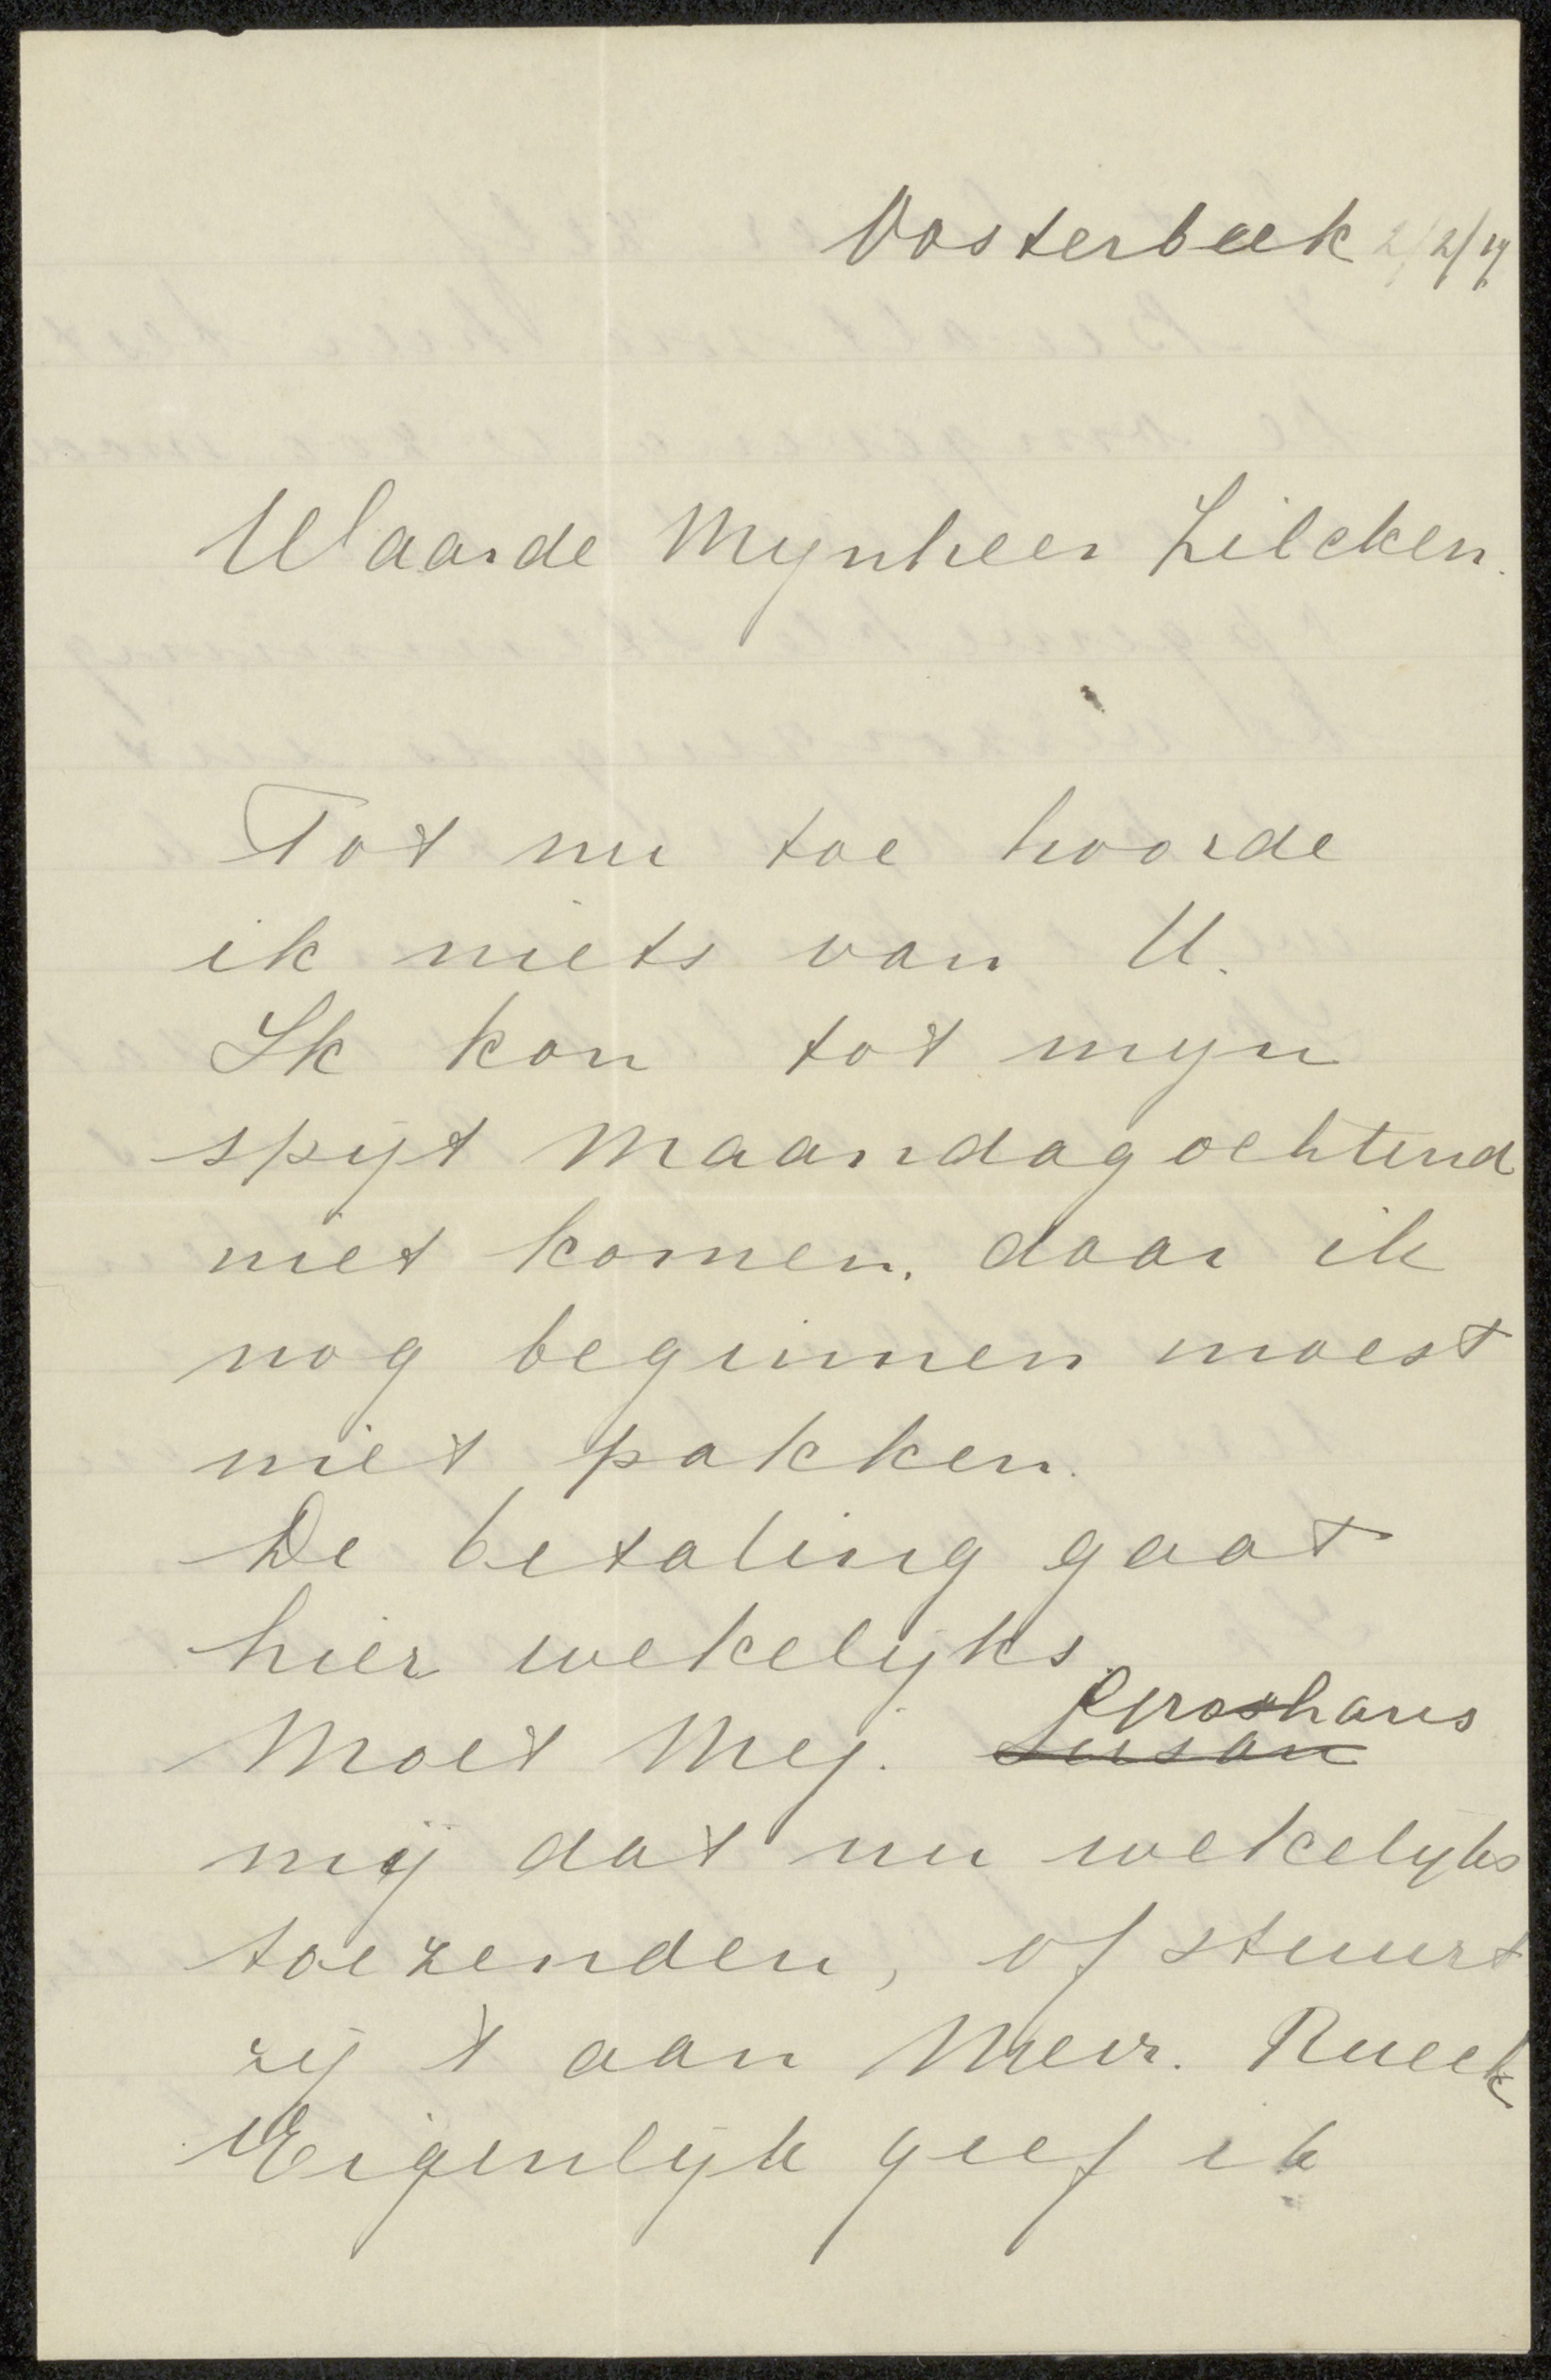 Oosterbeek 2/2/19
Waarde Mynheer Zilcken.
Tot nu toe hoorde
ik niets van U.
Ik kon tot myn
spijt Maandagochtend
niet komen, daar ik
nog beginnen moest
met pakken.
De betaling gaat
hier wekelyks.
Groshans
Moet Mej. Susan
mij dat nu wekelyks
toezenden, of stuurt
zij 't aan Mevr. Rueck
Eigenlyk geef ik